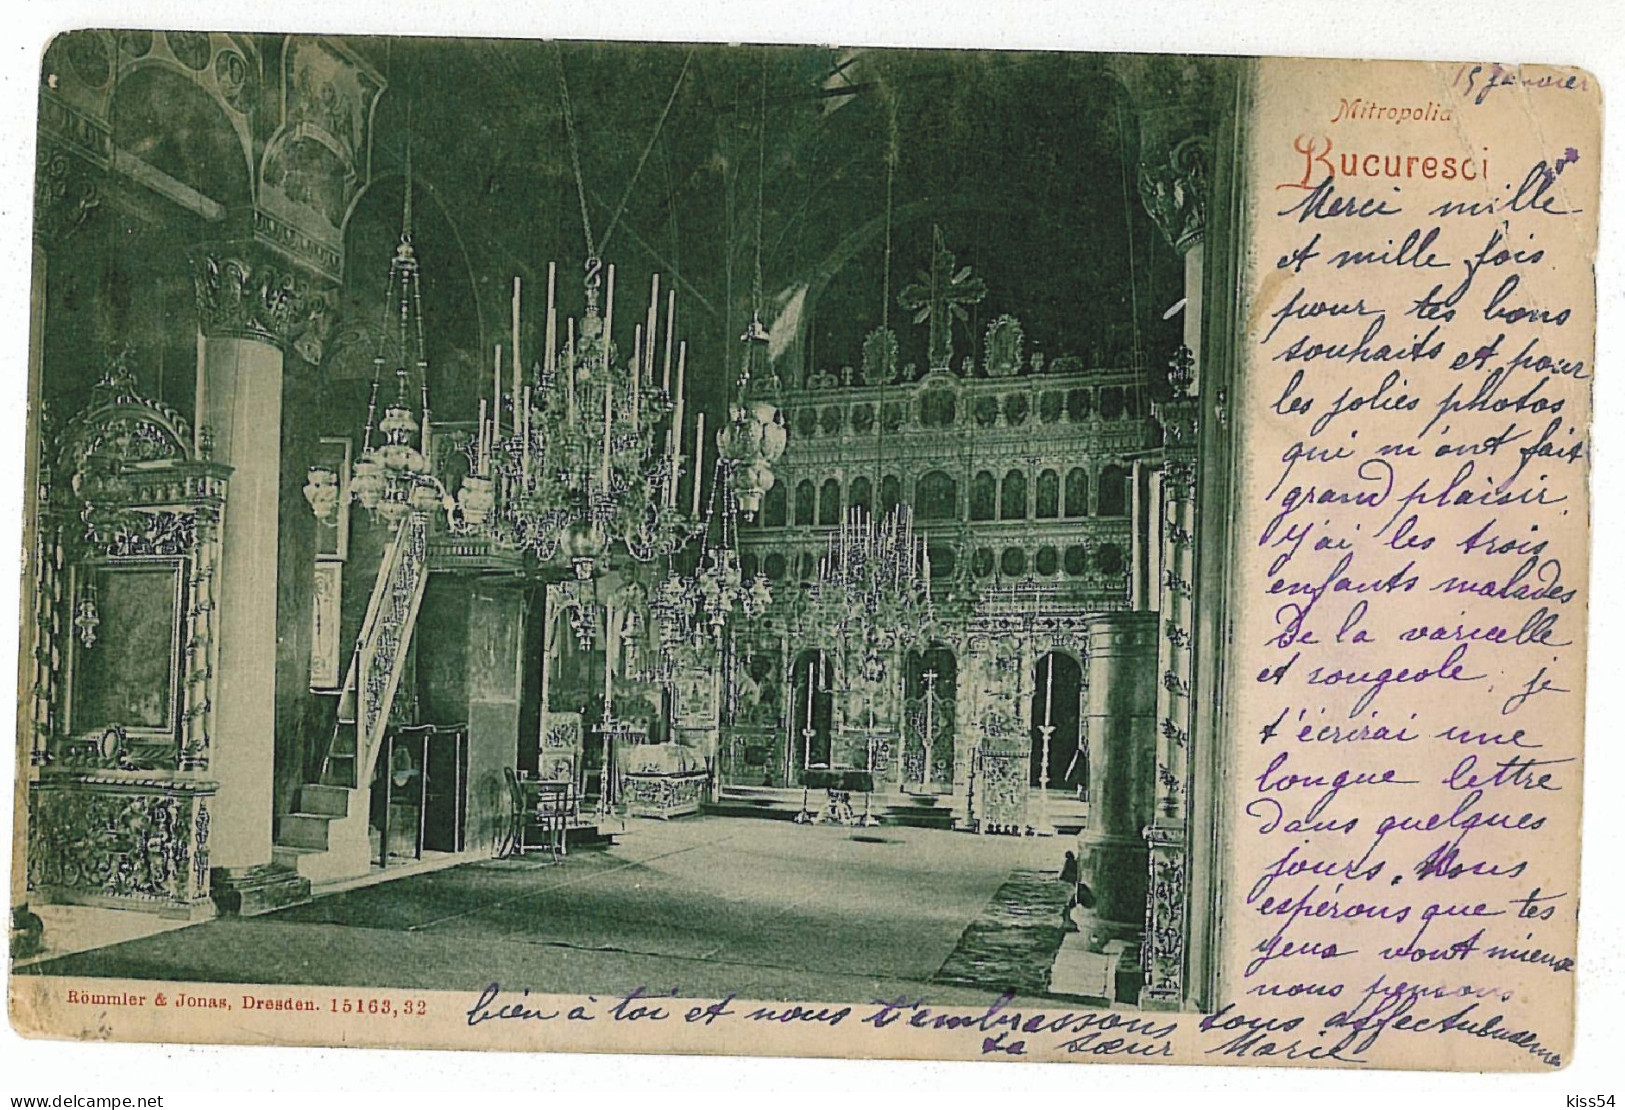 15 Janvier
Mitropolia
Bucuresci
Merci mille
et mille fois
pour tes bons
souhaits et pour
les jolies photos
qui m'ont fait
grand plaisir.
J'ai les trois
enfants malades
De la varicelle
et rougeole; je
t'écrirai une
longue lettre
dans quelques
jours. Nous
espérons que tes
yeux vont mieux
nous pensons
bien à toi et nous t'embrassons tous affectueuseme
ta sœur Marie
Römmler & Jonas, Dresden. 15163,32
delcampe.net
kiss54